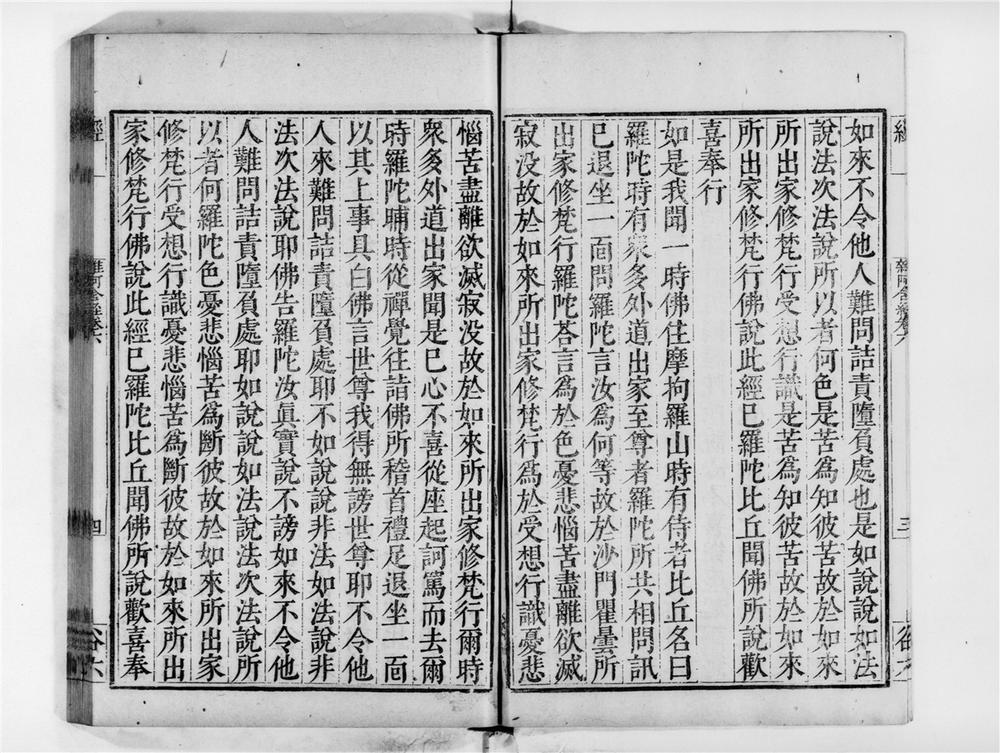 如來不令他人難問詰責墮負處也是如說說如法
說法次法說所以者何色是苦為知彼苦故於如來
所出家修梵行受想行識是苦為知彼苦故於如來
所出家修梵行佛說此經已羅陀比丘聞佛所說歡
喜奉行
如是我聞一時佛住摩拘羅山時有侍者比丘名曰
羅陀時有衆多外道出家至尊者羅陀所共相問訊
已退坐一面問羅陀言汝為何等故於沙門瞿曇所
出家修梵行羅陀荅言為於色憂悲惱苦盡離欲滅
寂没故於如來所出家修梵行為於受想行識憂悲
惱苦盡離欲滅寂没故於如來所出家修梵行爾時
衆多外道出家聞是已心不喜從座起訶罵而去爾
時羅陀晡時從禪覺往詣佛所稽首禮足退坐一面
以其上事具白佛言世尊我得無謗世尊耶不令他
人來難問詰責墮負處耶不如說說非法如法說非
法次法說耶佛告羅陀汝真實說不謗如來不令他
人難問詰責墮負處耶如說說如法說法次法說所
以者何羅陀色憂悲惱苦為斷彼故於如來所出家
修梵行受想行識憂悲惱苦為斷彼故於如來所出
家修梵行佛說此經已羅陀比丘聞佛所說歡喜奉
經
雜阿含經卷六
三
谷六
經
雜阿含經卷六
四
谷六